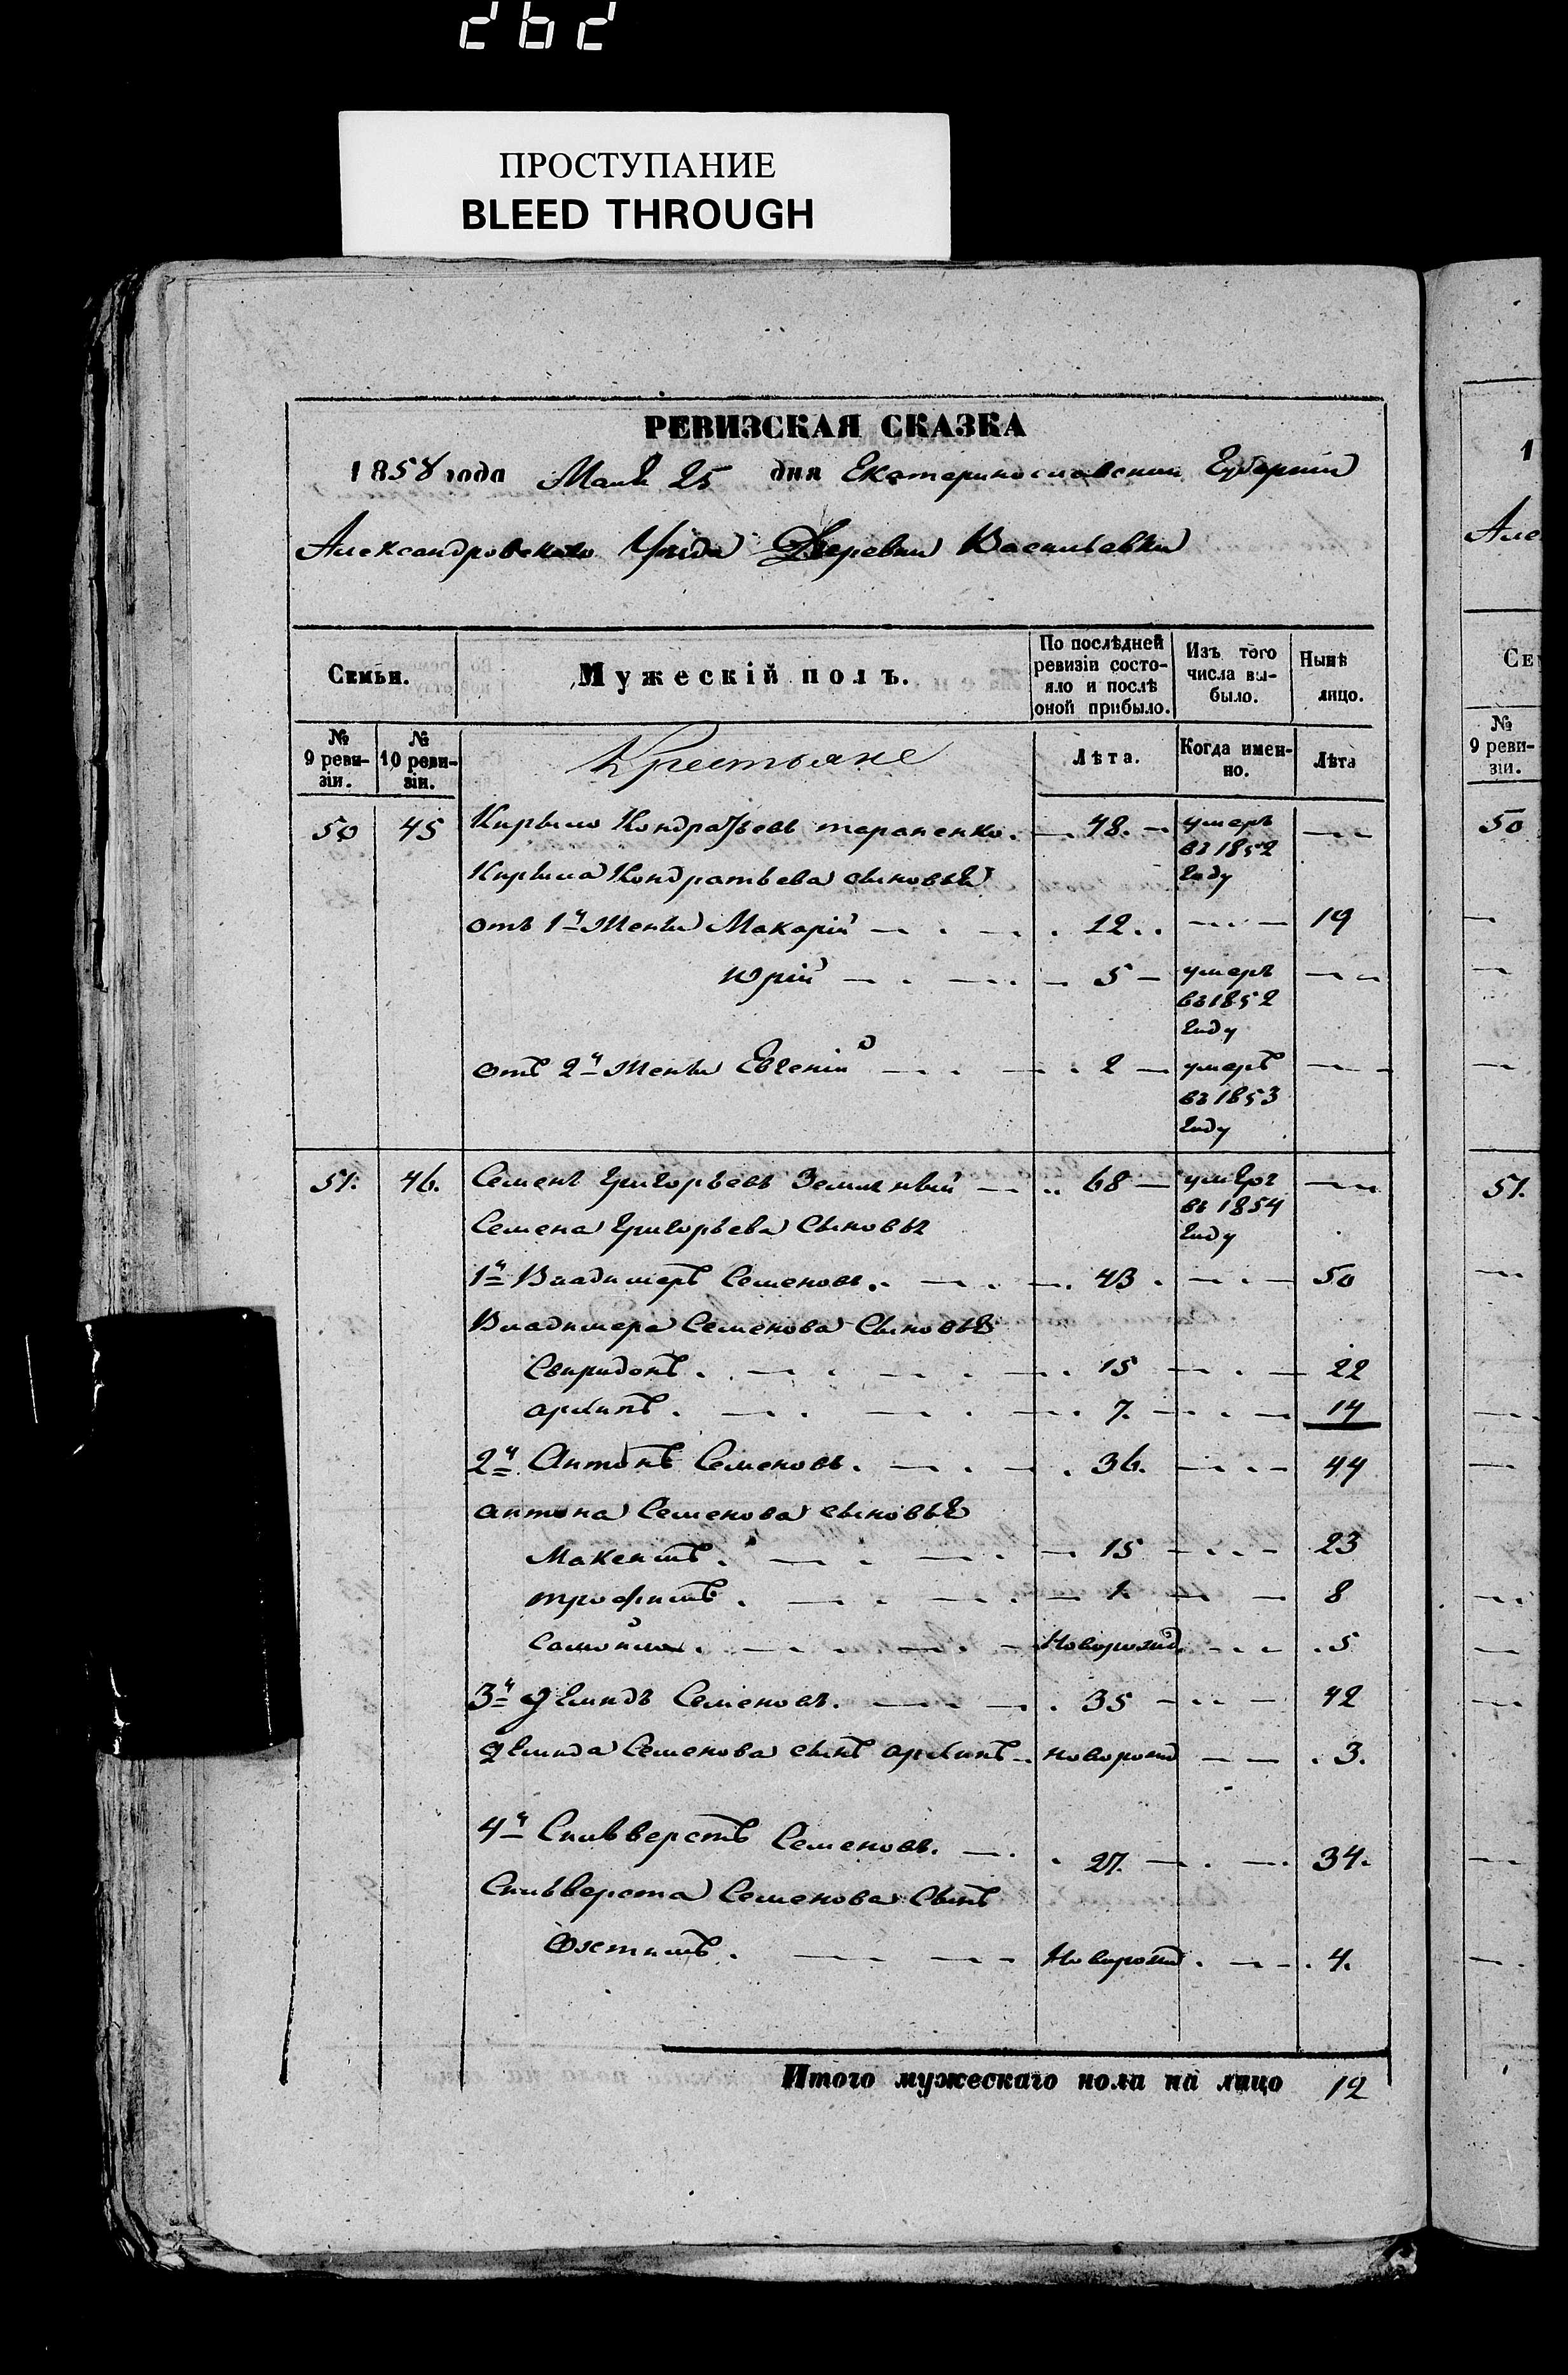 262
ПРОСТУПАНИЕ
BLEED THROUGH
РЕВИЗСКАЯ СКАЗКА
1858 года Маія 25 дня Екатеринославской Губерніи
Александровскаго Уѣзда Деревни Васильевки
Семьи.
Мужескій полъ.
По послѣдней ревизіи состояло и послѣ оной прибыло.
Изъ того числа выбыло.
Нынѣ лицо.
№ 9 ревизіи.
№ 10 ревизіи.
Крестьяне
Лѣта.
Когда именно.
Лѣта
50 45 Кирыло Кондратьевъ тараненко. 48. умеръ въ 1852 году
Кирыла Кондратьева сыновья
отъ 1й Жены Макарій 12 19
юрій 5 умеръ въ 1852 году
отъ 2й Жены Евгеній 2 умеръ въ 1853 году
51. 46. Семенъ Григорьевъ 68 умеръ въ 1854 году
Семена Григорьева Сыновья
1й Владимеръ Семеновъ. 43 50
Владимера Семенова Сыновья
Свиридонъ. 15 22
архипъ. 7. 14
2й Антонъ Семеновъ. 36. 44
антона Семенова сыновья
15 23
трофимъ. 1 8
Самойло. Новорожд. 5
3й Семеновъ. 35 42
Семенова сынъ архипъ новорожд 3.
4й Сильверстъ Семеновъ. 27. 34.
Сильверста Семенова Сынъ
Новорожд. 4.
Итого мужескаго пола на лицо 12
1
Але
Се
№ 9 ревизіи.
50
51.